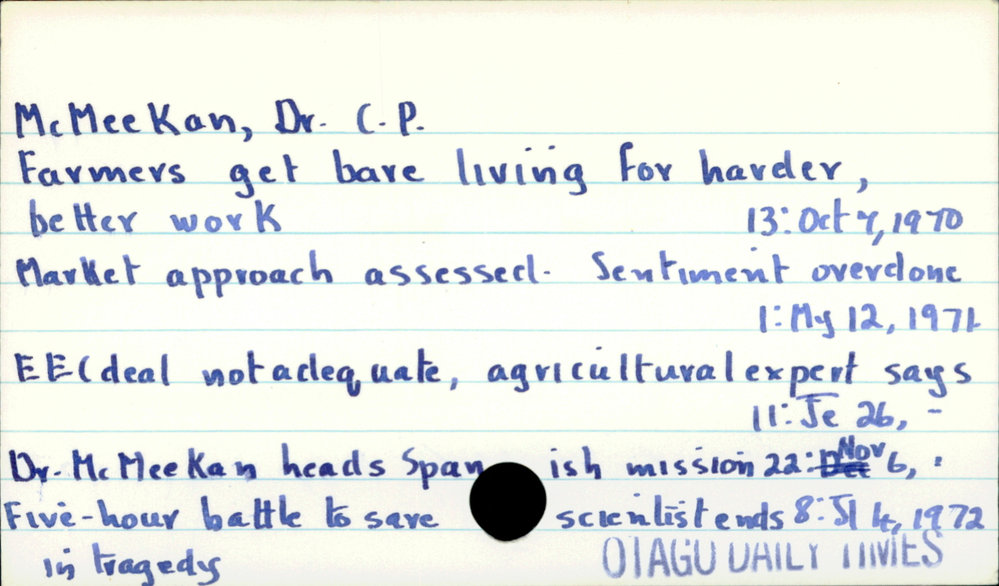 McMeeKan, Dr. C.P.
Farmers get bare living for harder,
better work 13: Oct 7, 1970
Market approach assessed. Sentiment overdone
1: My 12, 1971
EEC deal not adequate, agricultural expert says
11: Je 26, -
Dr. McMeeKan heads Spanish mission 22: Dec Nov 6, :
Five-hour battle to save scientist ends 8: Jl 4, 1972
in tragedy OTAGO DAILY TIMES